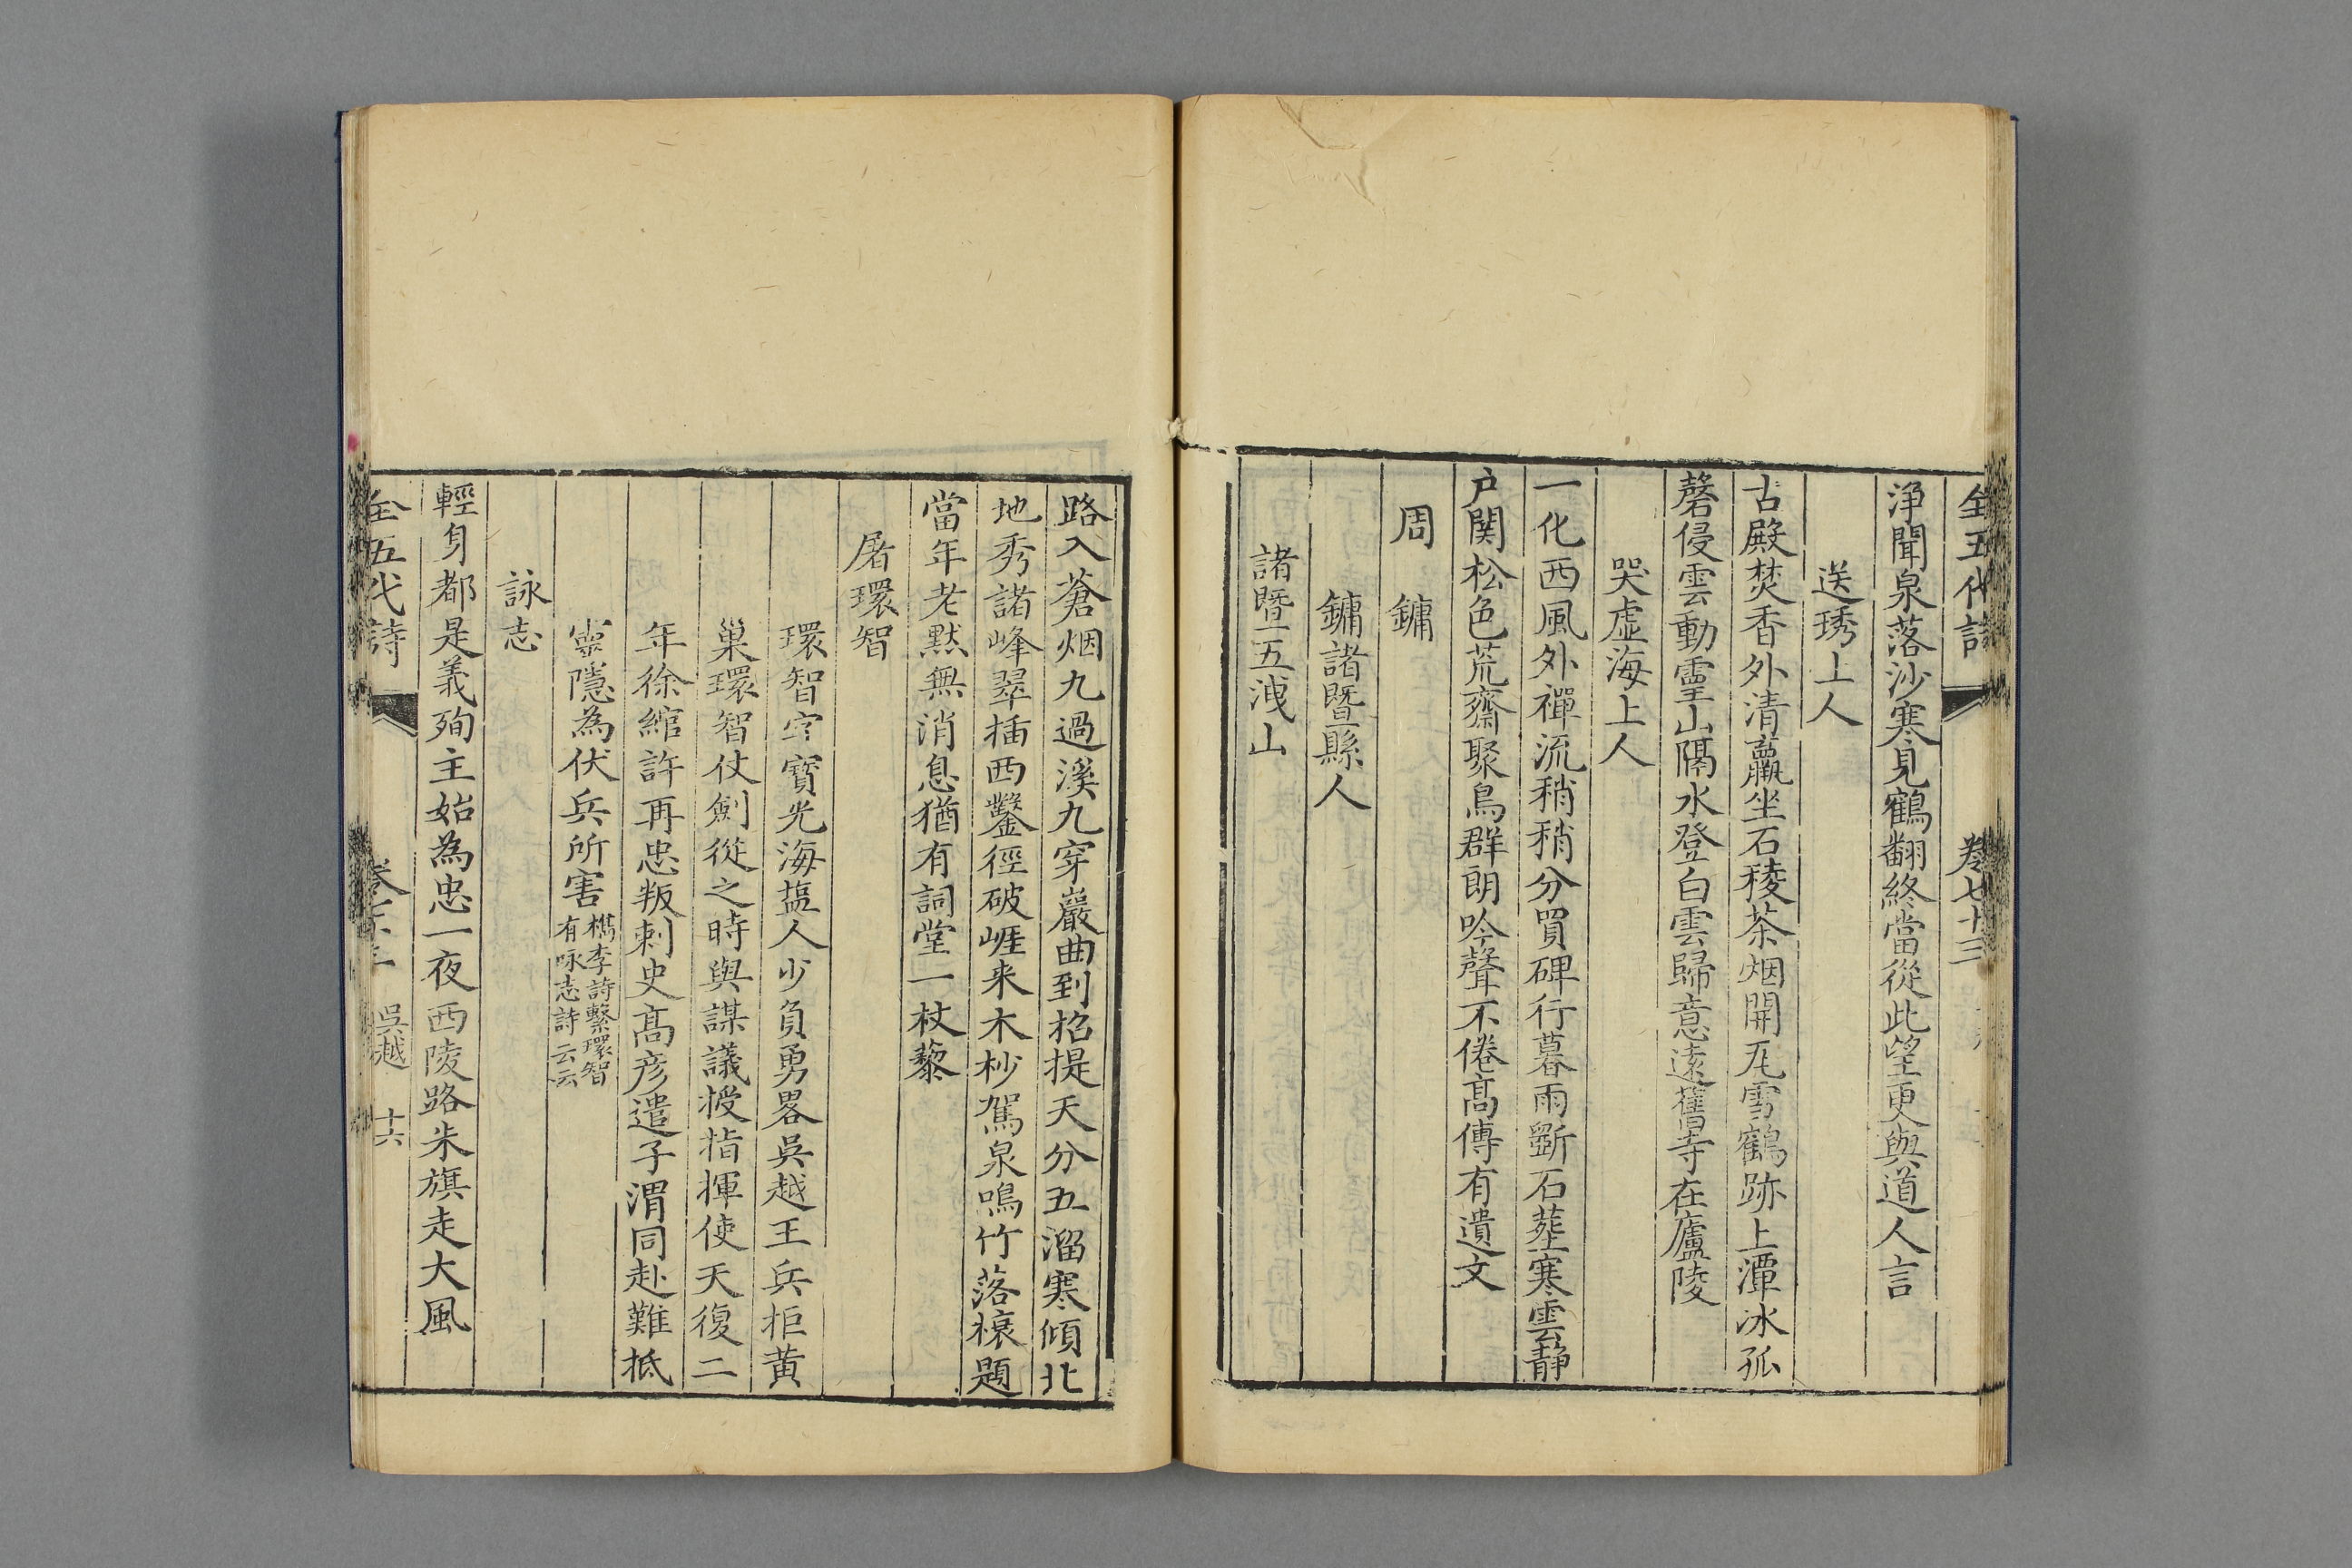 全五代詩 卷七十三
淨聞泉落沙寒見鶴翻終當從此望更與道人言
送琇上人
古殿焚香外清羸坐石稜茶烟開瓦雪鶴跡上潭冰孤
磬侵雲動靈山隔水登白雲歸意遠舊寺在廬陵
哭虛海上人
一化西風外禪流稍稍分買碑行暮雨斲石葬寒雲靜
户関松色荒齋聚鳥群朗吟聲不倦髙傳有遺文
周 鏞
鏞諸暨縣人
諸暨五洩山
路入蒼烟九過溪九穿巖曲到招提天分五溜寒傾北
地秀諸峰翠插西鑿徑破崕来木杪駕泉鳴竹落榱題
當年老黙無消息猶有詞堂一杖藜
屠環智
環智字寶光海塩人少負勇畧吳越王兵拒黄
巢環智仗劍從之時與謀議授指揮使天復二
年徐綰許再忠叛刺史髙彦遣子渭同赴難抵
靈隱為伏兵所害檇李詩繫環智
有咏志詩云云
詠志
輕身都是義殉主始為忠一夜西陵路朱旗走大風
全五代詩 吳越 十六